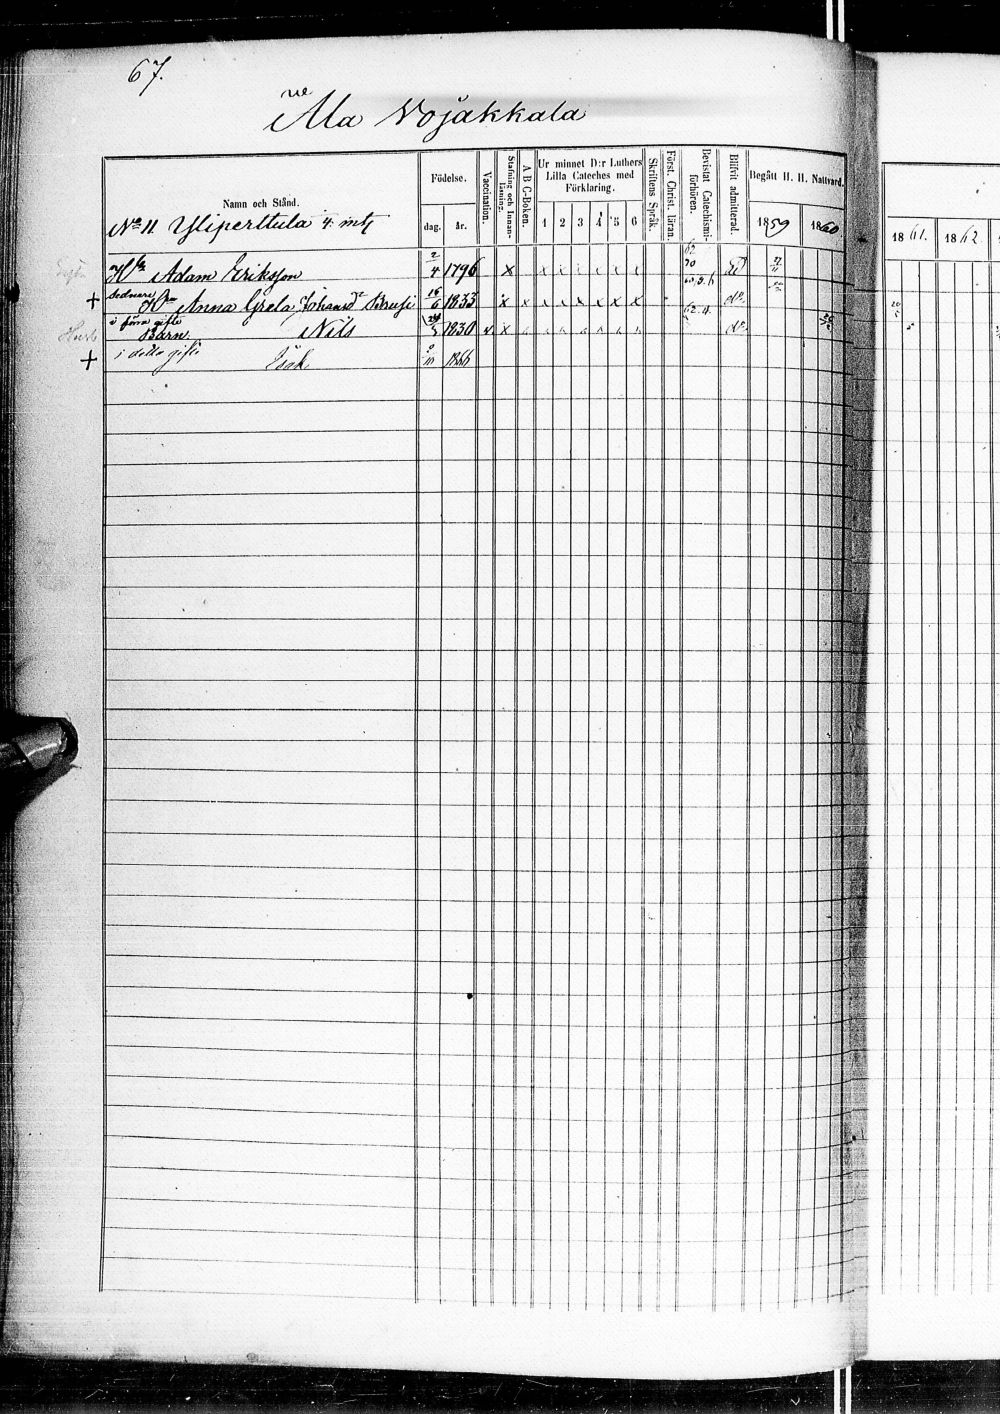 67.
Ala Nojakkala
Namn och Stånd.
Födelse.
dag. år.
Vaccination.
Stafning och Innanläsning.
A B C-Boken.
Ur minnet D:r Luthers Lilla Cateches med Förklaring.
1 2 3 4 5 6
Skriftens Språk.
Först. Christ. läran.
Bevistat Catechismiförhören.
Blifvit admitterad.
Begått H. H. Nattvard.
1859 1860
1861. 1862
No 11 Yliperttula 4. mtl
Adam Eriksson 2/4 1796 x
+ sednare Hu Anna Greta Johansdr 16/6 1833 x x x x x x do
i förra gifte
Barn. Nils 1830 x do
+ i detta gifte